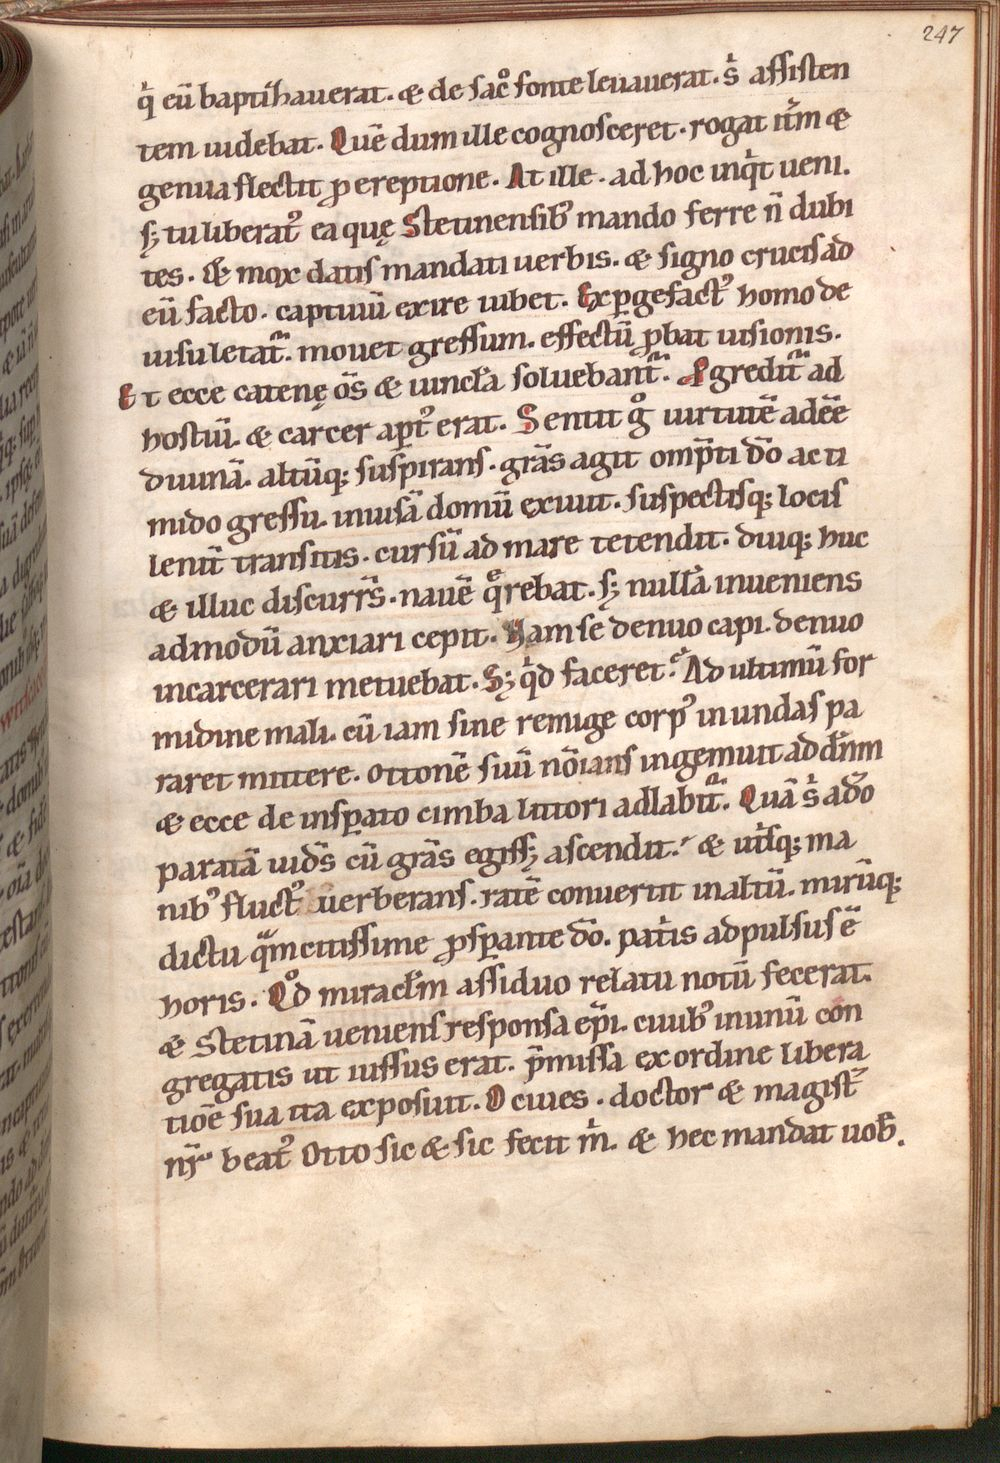 247
q̇ eū baptizauerat. & de sac̊ fonte leuauerat. s̓ assisten
tem uidebat. Quē dum ille cognosceret. rogat it̄m &
genua flectit ꝑ ereptione. At ille. ad hoc inq̇t ueni.
sꝫ tu liberat᷒ ea quę Stetinensib᷒ mando ferre n̄ dubi
tes. & mox datis mandati uerbis. & signo crucis ad
eū facto. captiuū exire iubet. Exꝑgefact᷒ homo de
uisu letat᷑. mouet gressum. effectū ꝓbat uisionis.
Et ecce catenę om̄s & uincl̄a soluebant᷑. Egredit᷑ ad
hostiū. & carcer apt᷒ erat. Sentit g̊ uirtutē adēē
diuinā. altūqꝫ suspirans. gr̄as agit omp̄ti dō ac ti
mido gressu. inuisā domū exiuit. suspectisqꝫ locis
leniт̄ transitis. cursū ad mare tetendit. diuqꝫ huc
& illuc discurr̄s. nauē q̄rebat. sꝫ nullā inueniens
admodū anxiari cepit. Nam se denuo capi. denuo
incarcerari metuebat. Sꝫ q̇d faceret? Ad ultimū for
midine mali. cū iam sine remige corp᷒ in undas pa
raret mittere. Ottonē suū nōians ingemuit ad dn̄m
& ecce de insꝑato cimba littori adlabit᷑. Quā s̓ a dō
paratā uid̄s cū gr̄as egissꝫ ascendit. & ut̓sqꝫ ma
nib᷒ fluct᷒ uerberans. ratē conuertit in altū. mirūqꝫ
dictu q̄m citissime ꝓsꝑante dō. pat̓is adpulsus ē
horis. Qd̊ miracl̄m assiduo relatu notū fecerat.
& Stetinā ueniens responsa ep̄i. cuub᷒ in unū con
gregatis ut iussus erat. p̄missa ex ordine libera
tiōe sua ita exposuit. O ciues. doctor & magist᷒
nr̄ beat᷒ Otto sic & sic fecit m̓. & hec mandat uob̄.